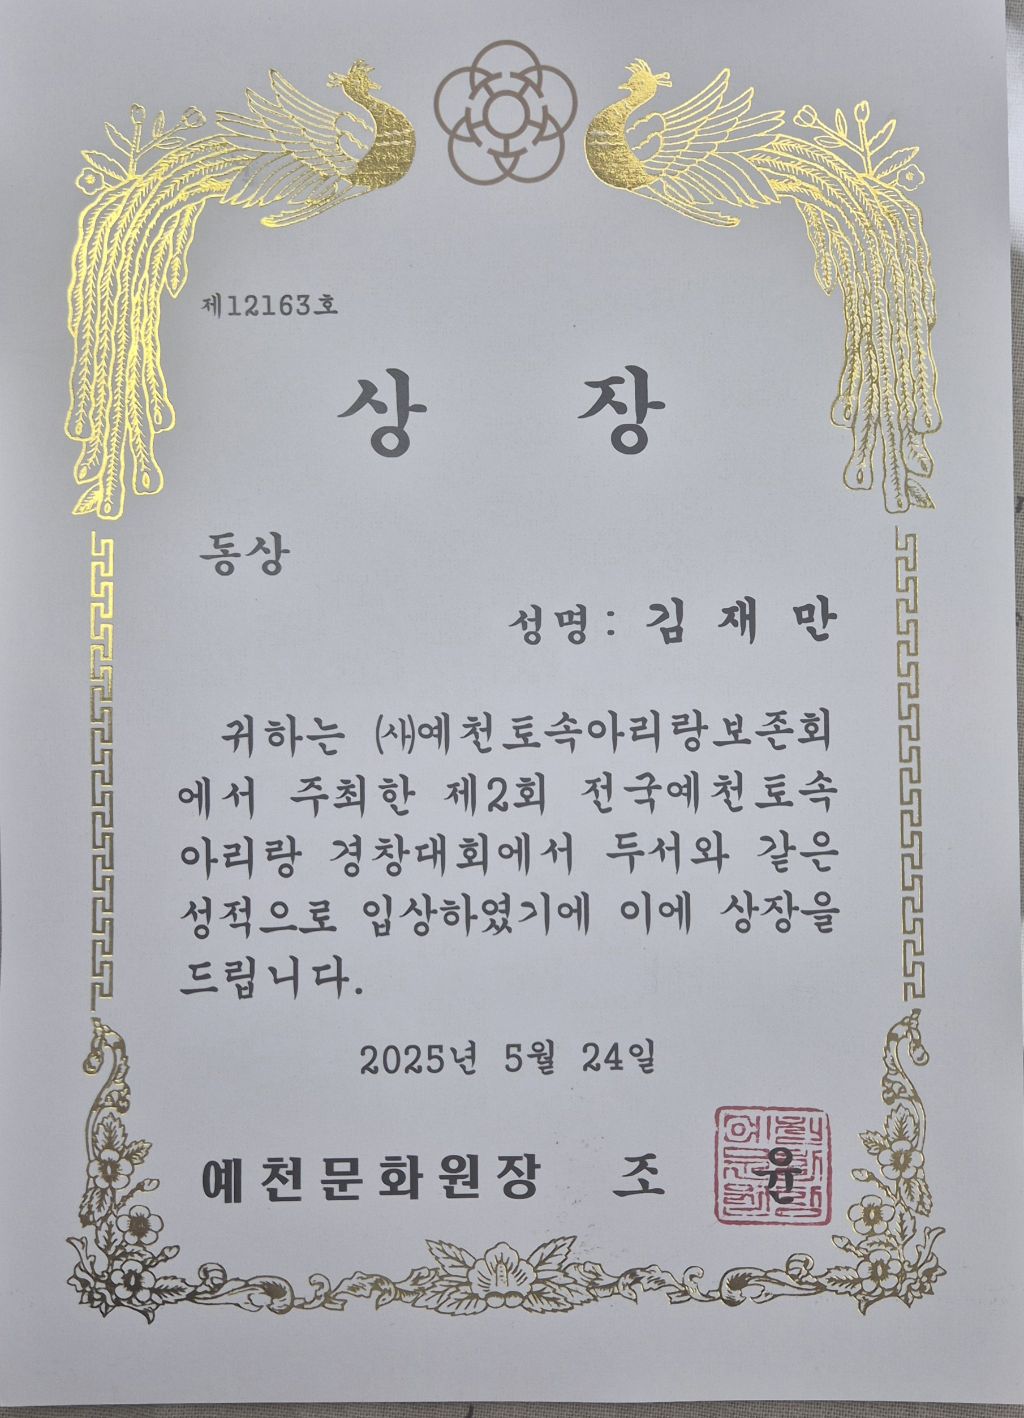 제12163호
상 장
동상
성명: 김 재 만
귀하는 (사)예천토속아리랑보존회
에서 주최한 제2회 전국예천토속
아리랑 경창대회에서 두서와 같은
성적으로 입상하였기에 이에 상장을
드립니다.
2025년 5월 24일
예천문화원장 조 윤